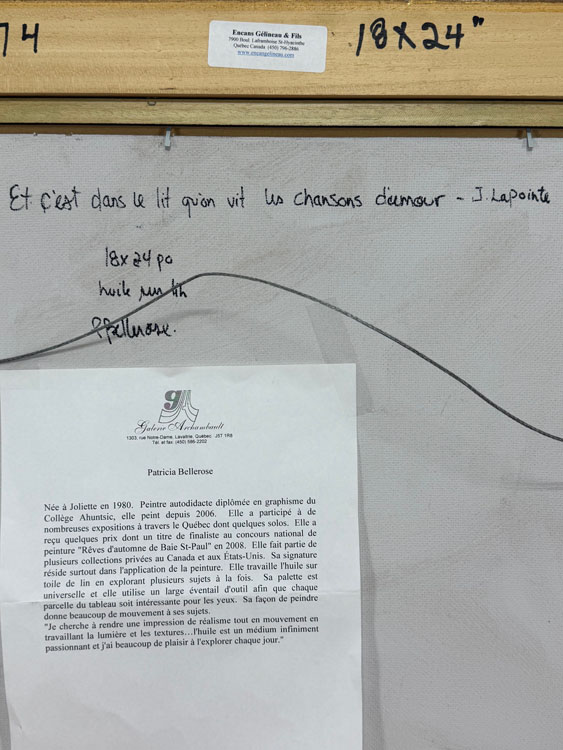 74
Encans Gélineau & Fils
5900 Boul Laframboise St-Hyacinthe
Québec Canada (450) 796-2886
www.encangelineau.com
18x24"
Et c'est dans le lit qu'on vit les chansons d'amour - J. Lapointe
18x24 po
huile sur lin
P.Bellerose.
ga
Galerie Archambault
1303, rue Notre-Dame, Lavaltrie, Québec J5T 1R9
Tél. et fax: (450) 586-2202
Patricia Bellerose
Née à Joliette en 1980. Peintre autodidacte diplômée en graphisme du
Collège Ahuntsic, elle peint depuis 2006. Elle a participé à de
nombreuses expositions à travers le Québec dont quelques solos. Elle a
reçu quelques prix dont un titre de finaliste au concours national de
peinture "Rêves d'automne de Baie St-Paul" en 2008. Elle fait partie de
plusieurs collections privées au Canada et aux États-Unis. Sa signature
réside surtout dans l'application de la peinture. Elle travaille l'huile sur
toile de lin en explorant plusieurs sujets à la fois. Sa palette est
universelle et elle utilise un large éventail d'outil afin que chaque
parcelle du tableau soit intéressante pour les yeux. Sa façon de peindre
donne beaucoup de mouvement à ses sujets.
"Je cherche à rendre une impression de réalisme tout en mouvement en
travaillant la lumière et les textures...l'huile est un médium infiniment
passionnant et j'ai beaucoup de plaisir à l'explorer chaque jour."